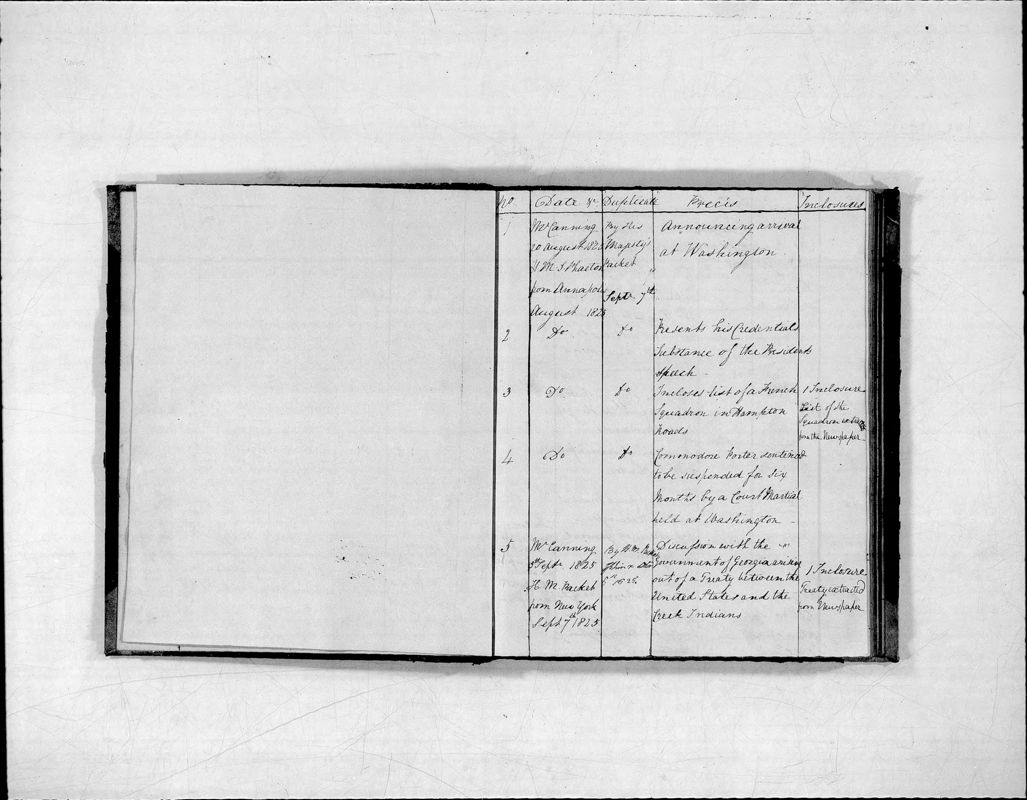 No. Date &c. Duplicate Precis Inclosures
1 Mr Canning By His Announcing arrival
20 August 1825 Majesty's at Washington
H M S Phaeton Packet
from Annapolis Septr 7th
August 1825
2 Do Do Presents his Credentials
Substance of the Presidents
Speech
3 Do Do Incloses list of a French 1 Inclosure
Squadron in Hampton List of the
Roads Squadron
from the Newspaper
4 Do Do Commodore Porter sentenced
to be suspended for Six
Months by a Court Martial
held at Washington
5 Mr Canning By H. M. Discussion with the
5th Septr 1825 Government of Georgia arising 1 Inclosure
H. M. Packet out of a Treaty between the Treaty extracted
from New York United States and the from Newspaper
Septr 7th 1825 Creek Indians